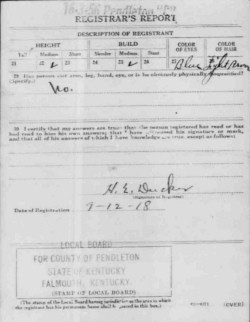 REGISTRAR'S REPORT
DESCRIPTION OF REGISTRANT
HEIGHT BUILD COLOR OF EYES COLOR OF HAIR
Tall Medium Short Slender Medium Stout
21 22 ✓ 23 24 25 ✓ 26 27 Blue Light Brown
29 Has person lost arm, leg, hand, eye, or is he obviously physically disqualified?
(Specify.)
No.
30 I certify that my answers are true; that the person registered has read or has
had read to him his own answers; that I have witnessed his signature or mark,
and that all of his answers of which I have knowledge are true, except as follows:
H. E.
(Signature of Registrar)
Date of Registration 9-12-18
LOCAL BOARD
FOR COUNTY OF PENDLETON
STATE OF KENTUCKY
FALMOUTH, KENTUCKY.
(STAMP OF LOCAL BOARD)
(The stamp of the Local Board having jurisdiction of the area in which
the registrant has his permanent home shall be placed in this box.)
(OVER)